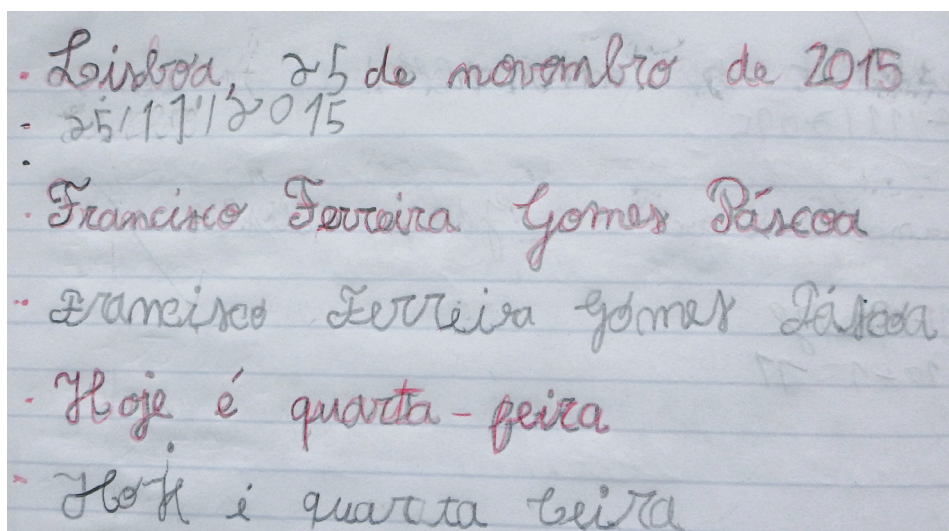 Lisboa, 25 de novembro de 2015
25/11/2015
Francisco Ferreira Gomes Páscoa
Francisco Ferreira Gomes Páscoa
Hoje é quarta-feira
Hoje é quarta feira